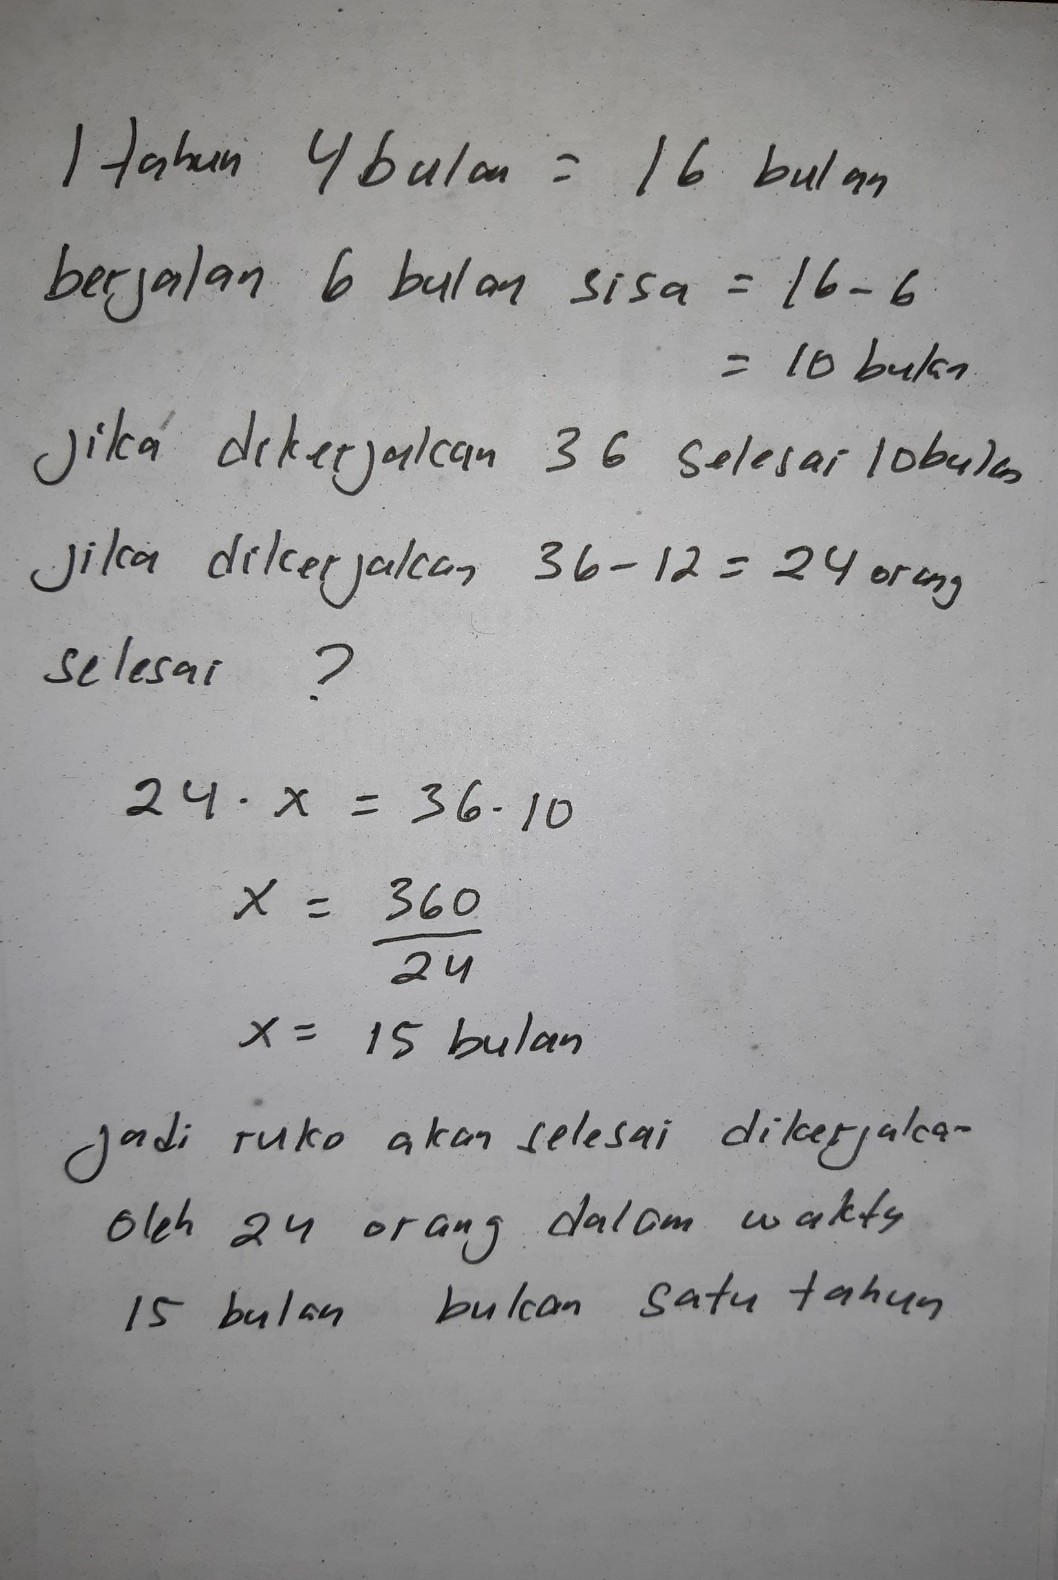 1 tahun 4 bulan = 16 bulan
berjalan 6 bulan sisa = 16 - 6
= 10 bulan
jika dikerjakan 36 selesai 10 bulan
jika dikerjakan 36 - 12 = 24 orang
selesai ?
24 . x = 36 . 10
x = 360
24
x = 15 bulan
jadi ruko akan selesai dikerjakan
oleh 24 orang dalam waktu
15 bulan bukan satu tahun